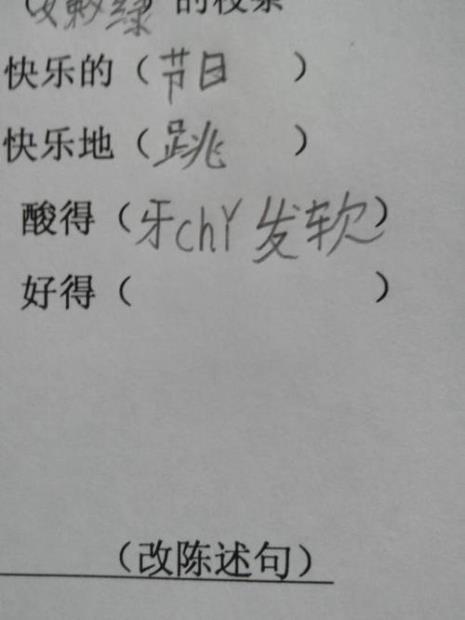 (嫩绿)的枝条
快乐的(节日)
快乐地(跳)
酸得(牙chǐ发软)
好得( )
(改陈述句)